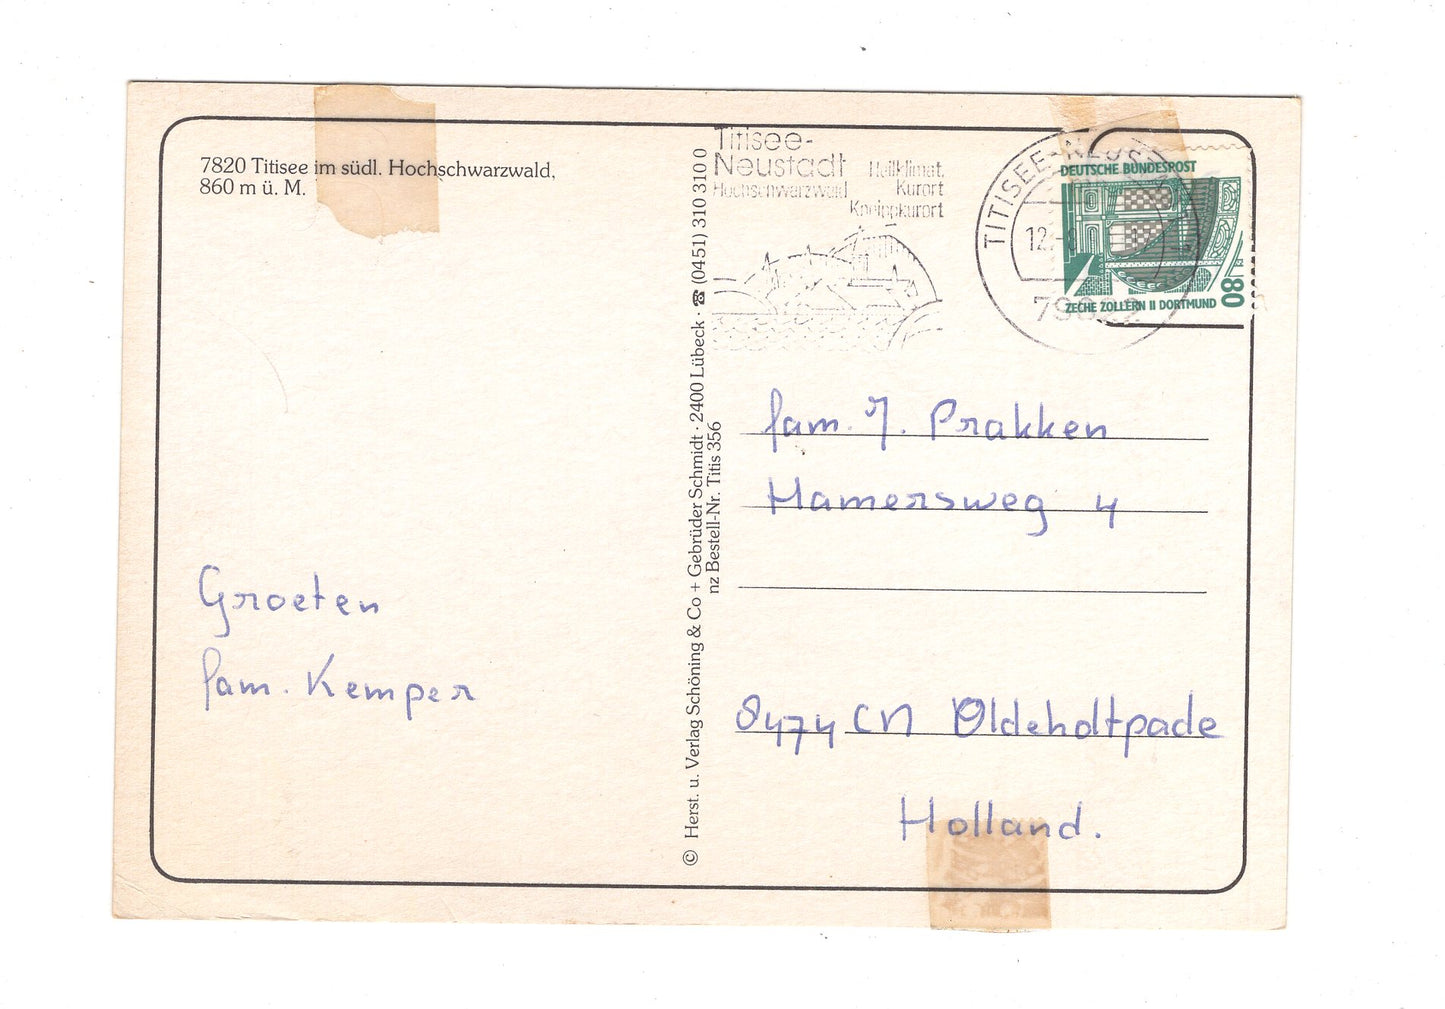 7820 Titisee im südl. Hochschwarzwald,
860 m ü. M.
Groeten
fam. Kemper
© Herst. u. Verlag Schöning & Co + Gebrüder Schmidt · 2400 Lübeck · ☎ (0451) 310 310 0
nz Bestell-Nr. Titis 356
Titisee-
Neustadt
Hochschwarzwald
Heilklimat.
Kurort
Kneippkurort
TITISEE-NEUS
12.-8
79822
DEUTSCHE BUNDESPOST
ZECHE ZOLLERN II DORTMUND
80
fam. J. Prakken
Hamersweg 4
8474 CN Oldeholtpade
Holland.